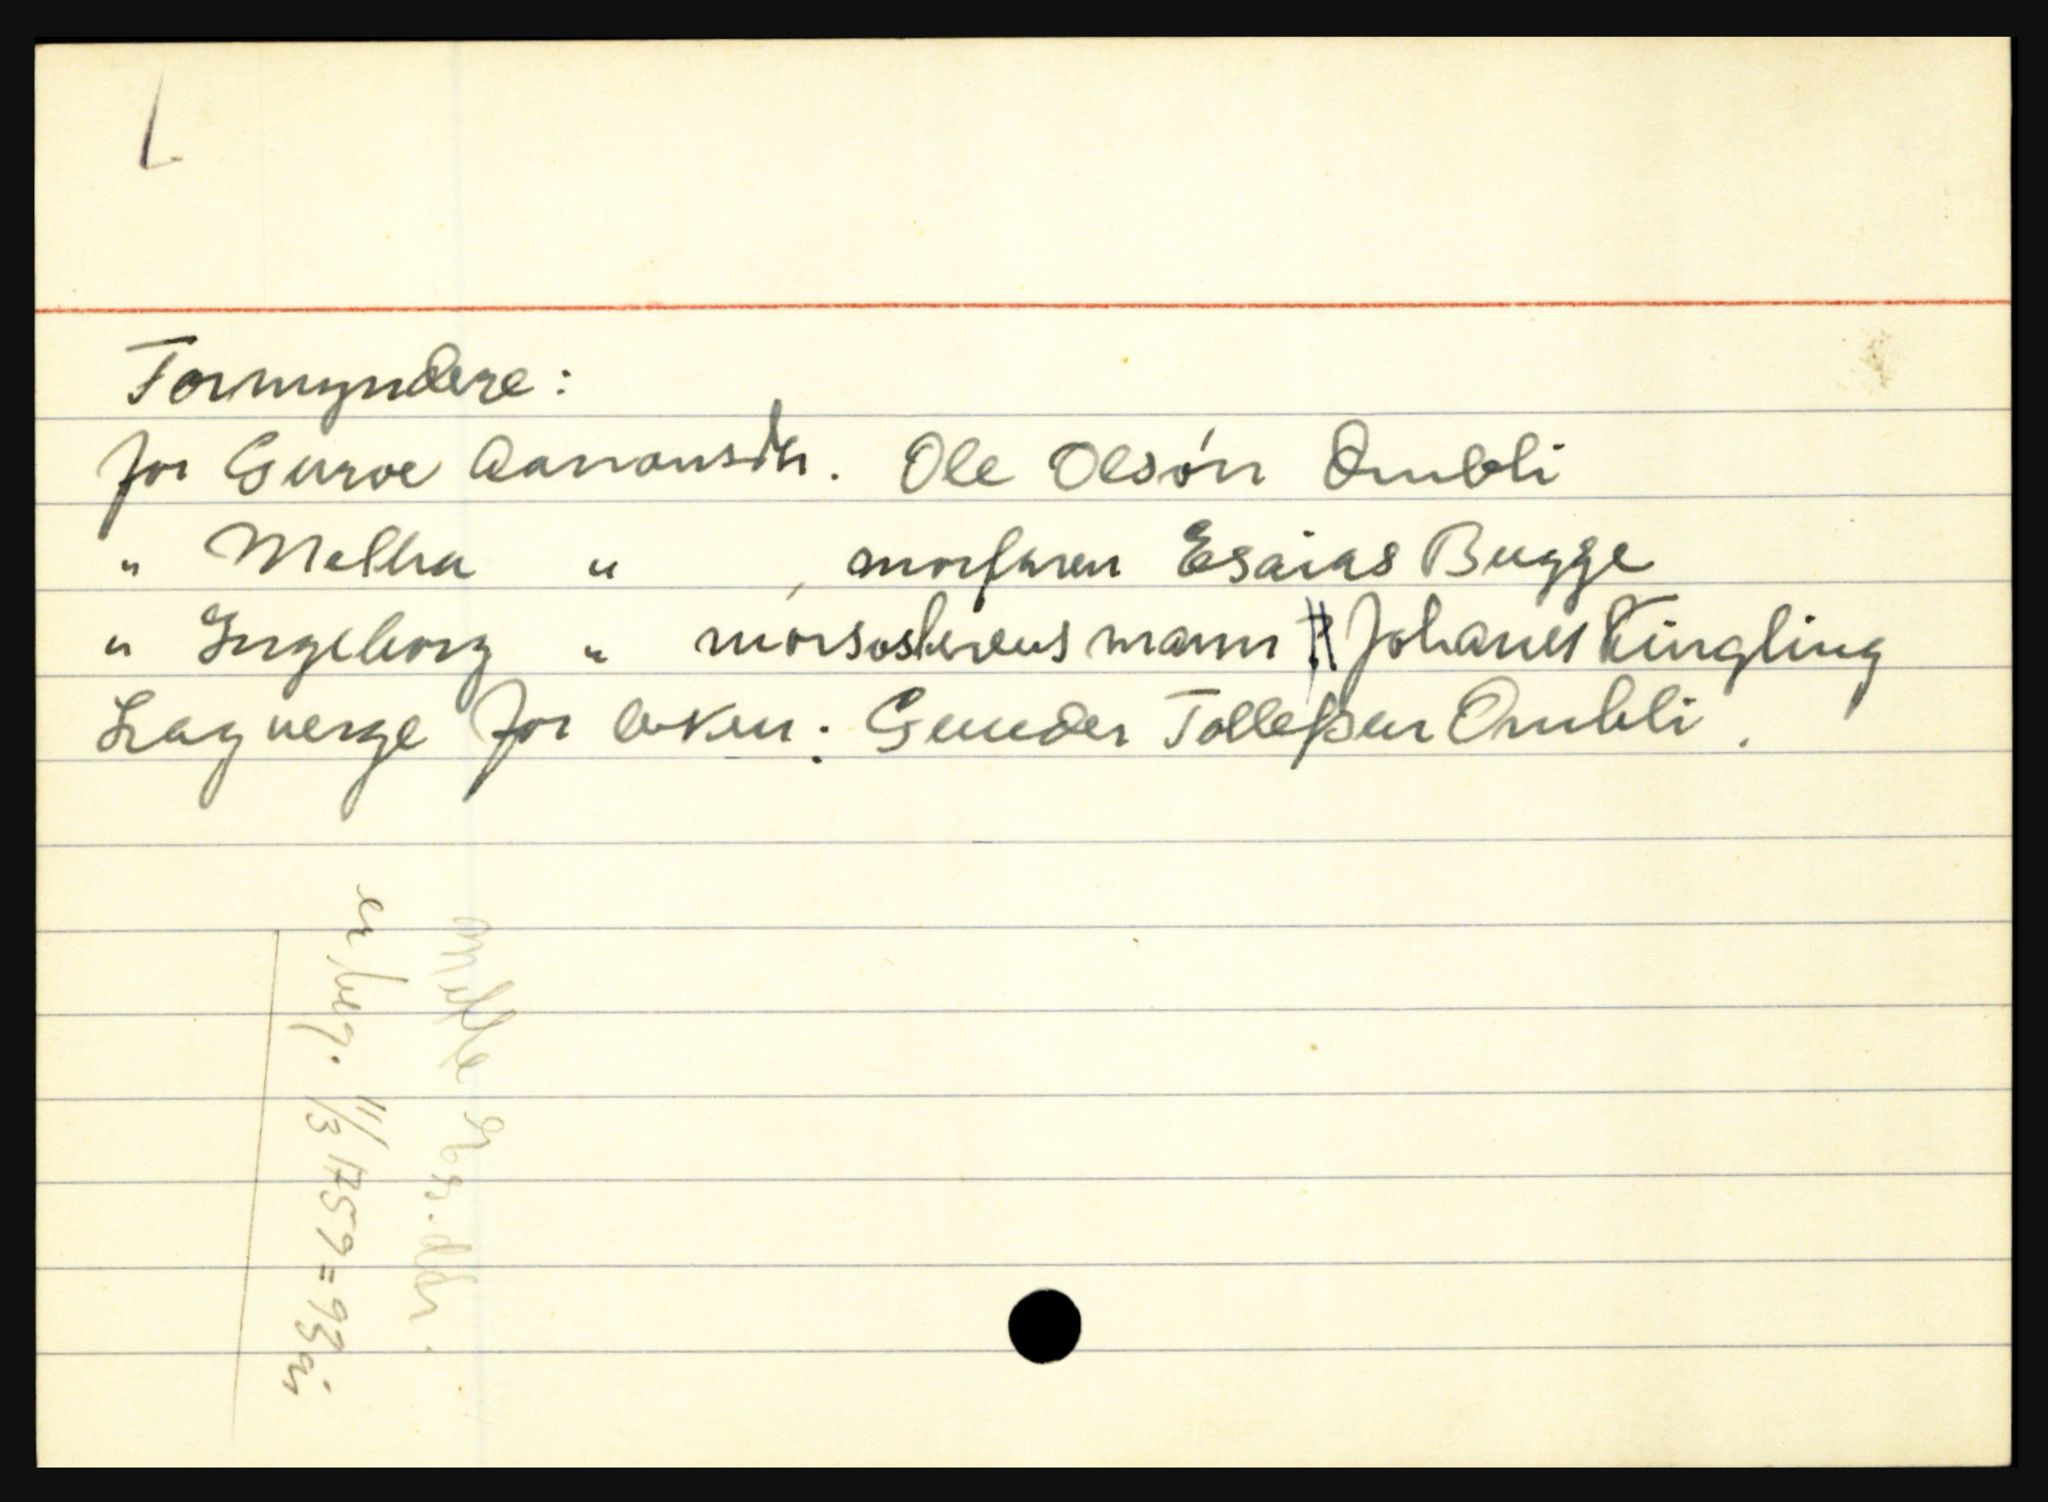 Formyndere:
for Guroe Aanonsdtr. Ole Olsøn Ombli
" Meltha " , morfaren Esaias Bugge
" Ingeborg " morsøsterens mann Johanes Kingling
Lagverge for enken: Gunder Tolleßen Ombli.
er beg. 11/3 1759 = 93 år